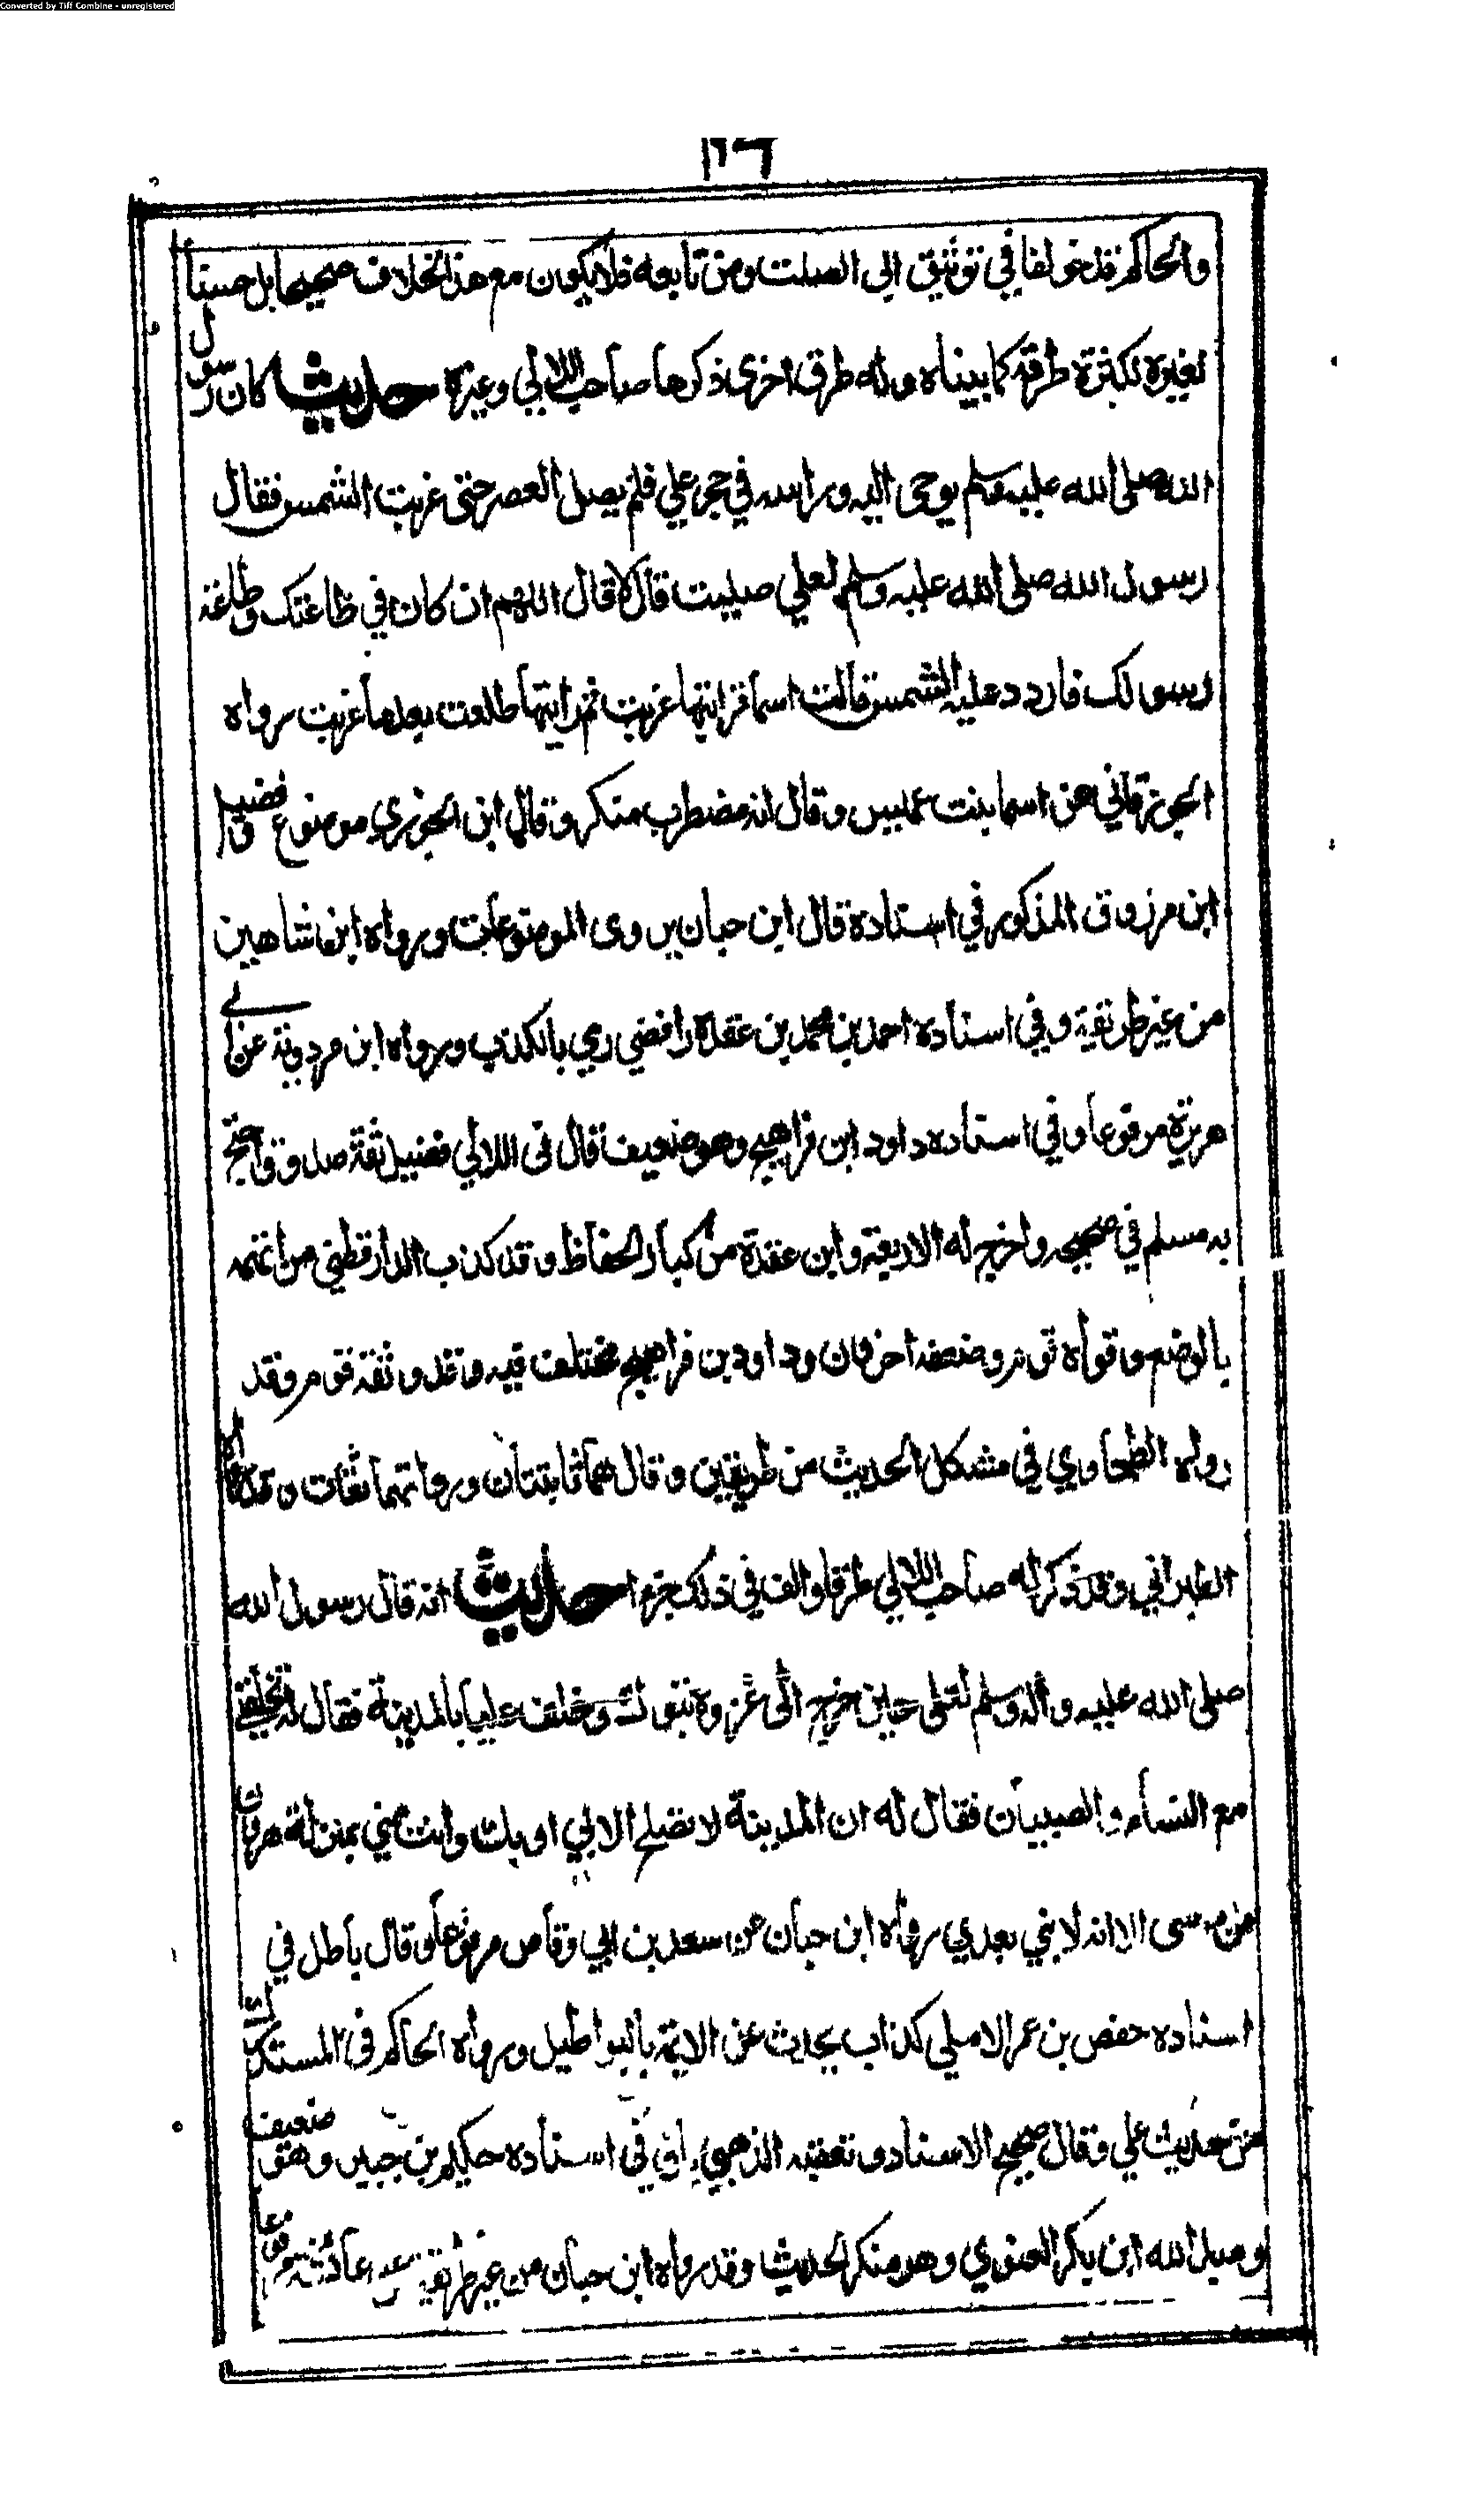 Converted by Tiff Combine - unregistered
والحاكم قد خولفا في توثيق ابي الصلت ومن تابعه فلا يكون مع هذا الخلاف صحيحا بل حسنا
لغيره لكثرة طرقه كما بيناه وله طرق اخرى ذكرها صاحب اللالي وغيره حديث كان رسول
الله صلى الله عليه وسلم يوحى اليه وراسه في حجر علي فلم يصل العصر حتى غربت الشمس فقال
رسول الله صلى الله عليه وسلم لعلي صليت قال لا قال اللهم ان كان في طاعتك وطاعة
رسولك فاردد عليه الشمس قالت اسما فرايتها غربت ثم رايتها طلعت بعدها غربت رواه
الجوزقاني عن اسما بنت عميس وقال انه مضطرب منكر وقال ابن الجوزي موضوع وفضيل
ابن مرزوق المذكور في اسناده قال ابن حبان يروي الموضوعات ورواه ابن شاهين
من غير طريقه وفي اسناده احمد بن محمد بن عقدة رافضي رمي بالكذب ورواه ابن مردويه عن ابي
هريرة مرفوعا وفي اسناده داود ابن فراهيج وهو ضعيف قال في اللالي فضيل ثقة صدوق احتج
به مسلم في صحيحه واخرج له الاربعة وابن عقدة من كبار الحفاظ وقد كذب الدارقطني من اتهمه
بالوضع وقواه قوم وضعفه اخرون وداود بن فراهيج مختلف فيه وقد وثقه قوم وقد
رواه الطحاوي في مشكل الحديث من طريقين وقال هما ثابتتان ورواتهما ثقات وقد رواه
الطبراني وقد ذكر له صاحب اللالي طرقا والف في ذلك جزءا حديث انه قال رسول الله
صلى الله عليه وآله وسلم لعلي حين خرج الى غزوة تبوك وخلف عليا بالمدينة فقال له تخلفني
مع النساء والصبيان فقال له ان المدينة لا تصلح الا بي او بك وانت مني بمنزلة هرون
من موسى الا انه لا نبي بعدي رواه ابن حبان عن سعد بن ابي وقاص مرفوعا وقال باطل في
اسناده حفص بن عمر الاملي كذاب يحدث عن الائمة بالبواطيل ورواه الحاكم في المستدرك
من حديث علي وقال صحيح الاسناد وتعقبه الذهبي في اسناده حكيم بن جبير وهو ضعيف
وعبد الله ابن بكر الغنوي وهو منكر الحديث وقد رواه ابن حبان من غير طريقه عن عائشة مرفوعا